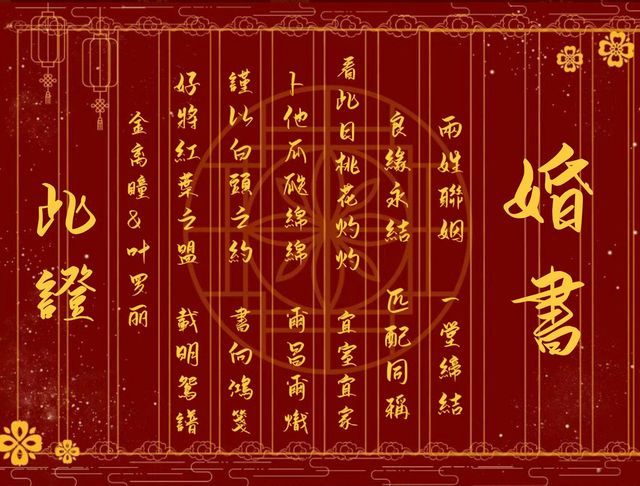 婚書
兩姓聯姻 一堂締結
良緣永結 匹配同稱
看此日桃花灼灼 宜室宜家
卜他瓜瓞綿綿 爾昌爾熾
謹以白頭之約 書向鴻箋
好將紅葉之盟 載明鴛譜
金离瞳&叶罗丽
此證